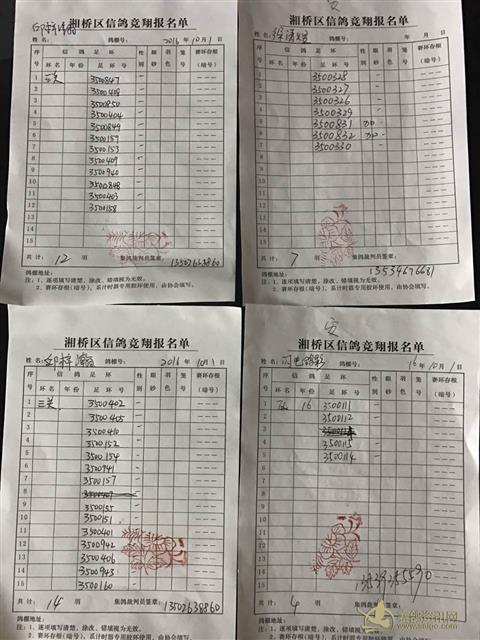 湘桥区信鸽竞翔报名单
姓名: 鸽棚号: 2016年10月1日
序号 信鸽足环 性别 眼砂 羽色 笼号 赛环存根(暗号)
环名 年份 足环号
1 三关 3500847
2 3500408
3 3500850
4 3500404
5 3500849
6 3500159
7 3500153
8 3500409
9 3500940
10 3500848
11 3500403
12 3500158
13
14
15
共计: 12 羽 集鸽裁判员签章: 13502638860
鸽棚地址:
注: 1、逐项填写清楚,涂改、错填视为无效。
2、赛环存根(暗号),系计时器专用胶环使用,由协会填写。
湘桥区信鸽竞翔报名单
姓名: 鸽棚号: 年 月 日
序号 信鸽足环 性别 眼砂 羽色 笼号 赛环存根(暗号)
环名 年份 足环号
1 3500328
2 3500327
3 3500326
4 3500329
5 3500831
6 3500832
7 3500330
8
9
10
11
12
13
14
15
共计: 7 羽 集鸽裁判员签章:
鸽棚地址: 13534676681
注: 1、逐项填写清楚,涂改、错填视为无效。
2、赛环存根(暗号),系计时器专用胶环使用,由协会填写。
湘桥区信鸽竞翔报名单
姓名: 鸽棚号: 2016年10月1日
序号 信鸽足环 性别 眼砂 羽色 笼号 赛环存根(暗号)
环名 年份 足环号
1 三关 3500402
2 3500405
3 3500410
4 3500152
5 3500154
6 3500941
7 3500157
8
9 3500155
10 3500151
11 3500401
12 3500942
13 3500406
14 3500943
15 3500160
共计: 14 羽 集鸽裁判员签章: 13502638860
鸽棚地址:
注: 1、逐项填写清楚,涂改、错填视为无效。
2、赛环存根(暗号),系计时器专用胶环使用,由协会填写。
湘桥区信鸽竞翔报名单
姓名: 鸽棚号: 16年10月1日
序号 信鸽足环 性别 眼砂 羽色 笼号 赛环存根(暗号)
环名 年份 足环号
1 16 3500111
2 3500112
3
4 3500115
5 3500114
6
7
8
9
10
11
12
13
14
15
共计: 4 羽 集鸽裁判员签章:
鸽棚地址:
注: 1、逐项填写清楚,涂改、错填视为无效。
2、赛环存根(暗号),系计时器专用胶环使用,由协会填写。